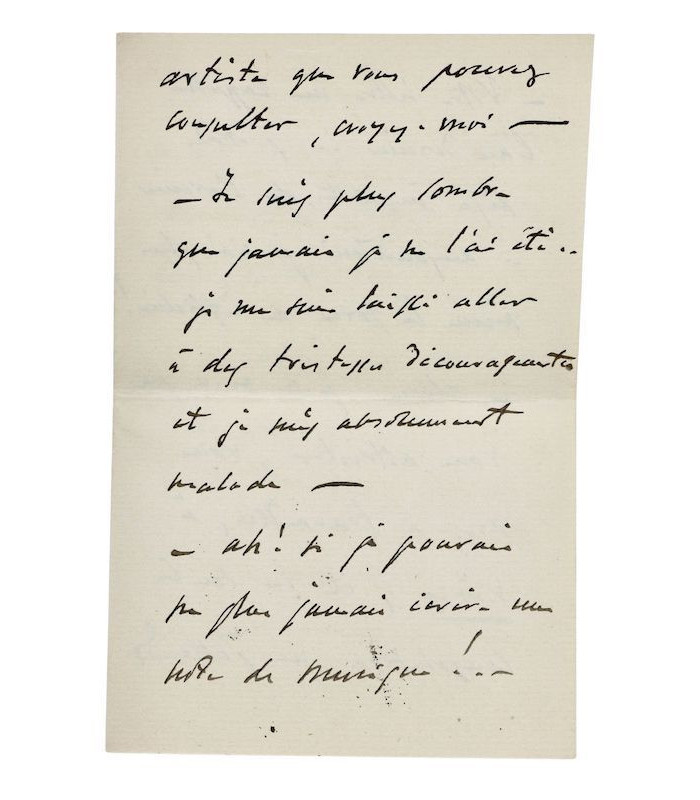 artiste que vous pouvez
consulter, croyez-moi —
— Je suis plus sombre
que jamais je ne l'ai été..
je me suis laissé aller
à des tristesses décourageantes
et je suis absolument
malade —
— ah! si je pouvais
ne plus jamais écrire une
note de musique!..—